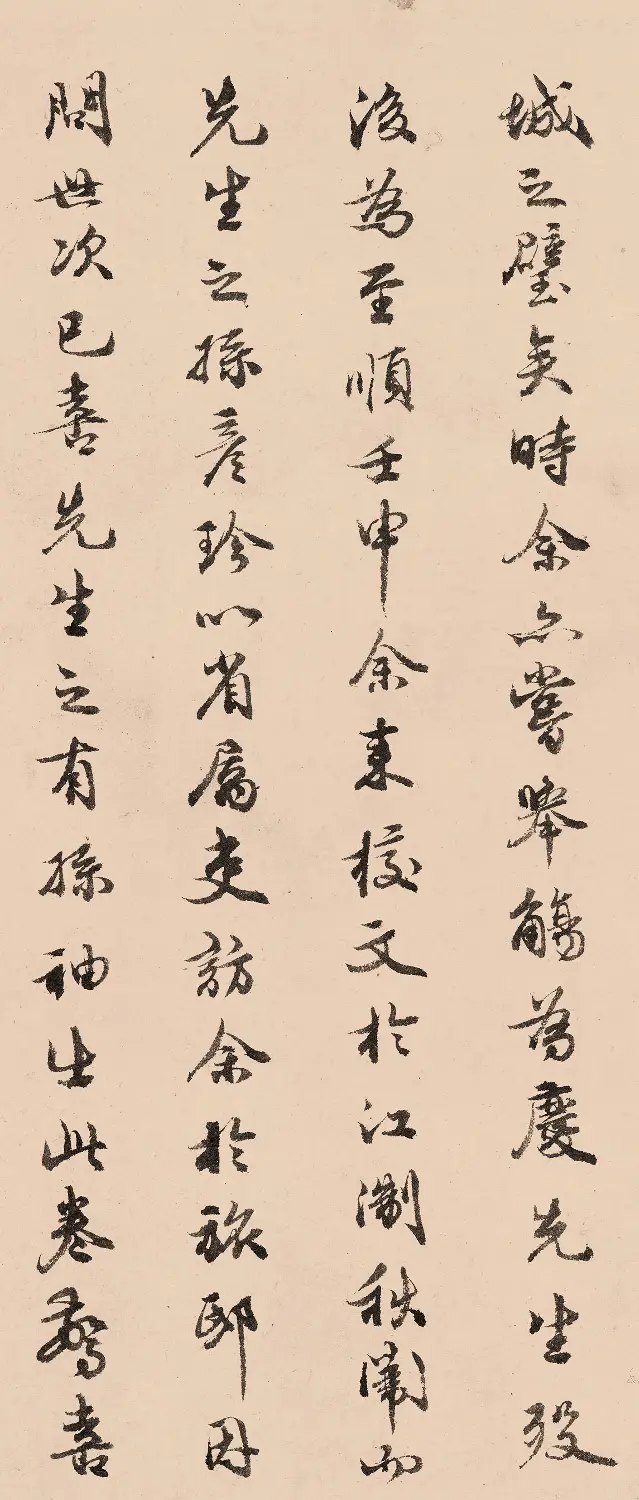 城之璧矣時余亦嘗舉觴為慶先生歿
後為至順壬申余來校文於江淛秋闈而
先生之孫彥珍以省屬吏訪余於旅邸因
問世次已喜先生之有孫袖出此卷驚喜